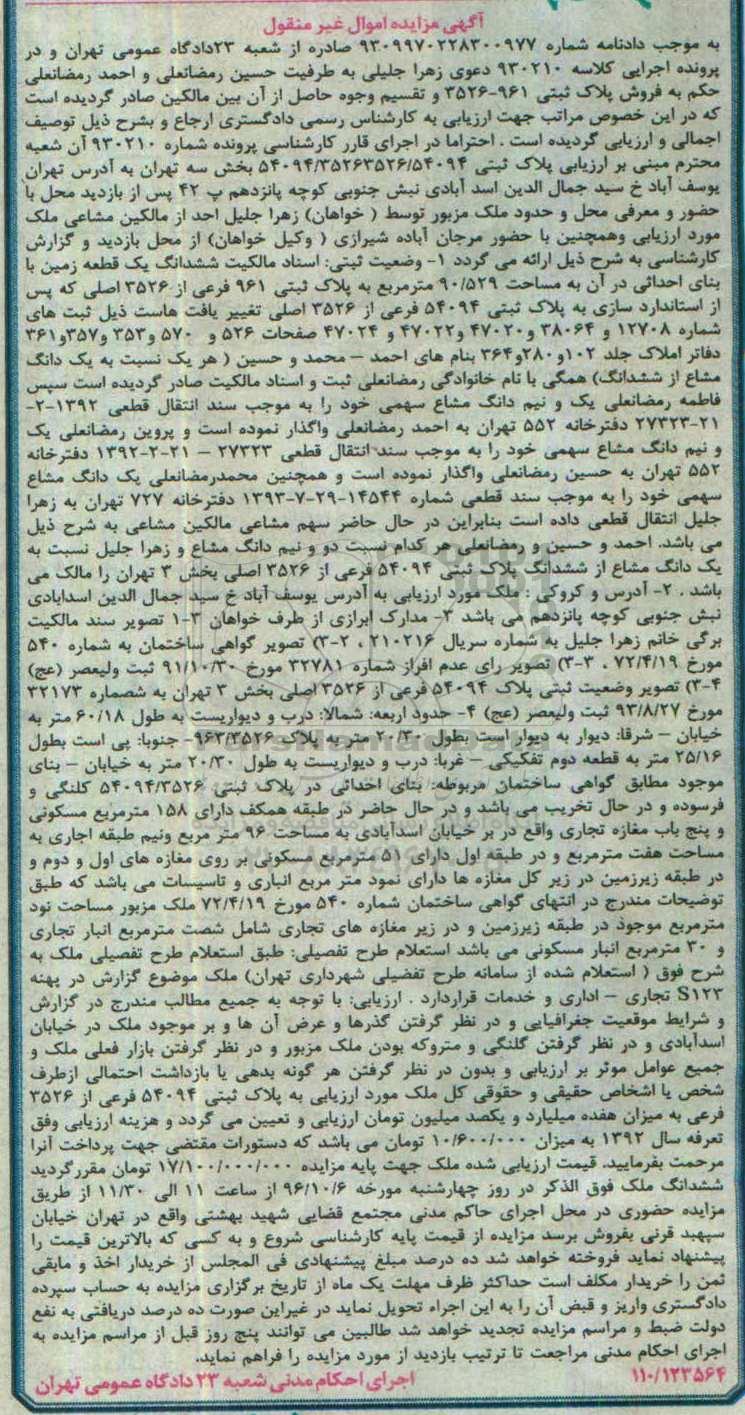 آگهی مزایده اموال غیر منقول
به موجب دادنامه شماره ۹۳۰۹۹۷۰۲۲۸۳۰۰۹۷۷ صادره از شعبه ۲۳دادگاه عمومی تهران و در
پرونده اجرایی کلاسه ۹۳۰۲۱۰ دعوی زهرا جلیلی به طرفیت حسین رمضانعلی و احمد رمضانعلی
حکم به فروش پلاک ثبتی ۹۶۱-۳۵۲۶ و تقسیم وجوه حاصل از آن بین مالکین صادر گردیده است
که در این خصوص مراتب جهت ارزیابی به کارشناس رسمی دادگستری ارجاع و بشرح ذیل توصیف
اجمالی و ارزیابی گردیده است . احتراما در اجرای قارر کارشناسی پرونده شماره ۹۳۰۲۱۰ آن شعبه
محترم مبنی بر ارزیابی پلاک ثبتی ۵۴۰۹۴/۳۵۲۶۳۵۲۶/۵۴۰۹۴ بخش سه تهران به آدرس تهران
یوسف آباد خ سید جمال الدین اسد آبادی نبش جنوبی کوچه پانزدهم پ ۴۲ پس از بازدید محل با
حضور و معرفی محل و حدود ملک مزبور توسط ( خواهان) زهرا جلیل احد از مالکین مشاعی ملک
مورد ارزیابی وهمچنین با حضور مرجان آباده شیرازی ( وکیل خواهان) از محل بازدید و گزارش
کارشناسی به شرح ذیل ارائه می گردد ۱- وضعیت ثبتی: اسناد مالکیت ششدانگ یک قطعه زمین با
بنای احداثی در آن به مساحت ۹۰/۵۲۹ مترمربع به پلاک ثبتی ۹۶۱ فرعی از ۳۵۲۶ اصلی که پس
از استاندارد سازی به پلاک ثبتی ۵۴۰۹۴ فرعی از ۳۵۲۶ اصلی تغییر یافت هاست ذیل ثبت های
شماره ۱۲۷۰۸ و ۳۸۰۶۴ و۴۷۰۲۰ و۴۷۰۲۲ و ۴۷۰۲۴ صفحات ۵۲۶ و ۵۷۰ و۳۵۳ و۳۵۷و۳۶۱
دفاتر املاک جلد ۱۰۲و۲۸۰و۳۶۴ بنام های احمد – محمد و حسین ( هر یک نسبت به یک دانگ
مشاع از ششدانگ) همگی با نام خانوادگی رمضانعلی ثبت و اسناد مالکیت صادر گردیده است سپس
فاطمه رمضانعلی یک و نیم دانگ مشاع سهمی خود را به موجب سند انتقال قطعی ۱۳۹۲-۲-
۲۱-۲۷۳۲۳ دفترخانه ۵۵۲ تهران به احمد رمضانعلی واگذار نموده است و پروین رمضانعلی یک
و نیم دانگ مشاع سهمی خود را به موجب سند انتقال قطعی ۲۷۳۲۳ – ۲۱-۲-۱۳۹۲ دفترخانه
۵۵۲ تهران به حسین رمضانعلی واگذار نموده است و همچنین محمدرمضانعلی یک دانگ مشاع
سهمی خود را به موجب سند قطعی شماره ۱۴۵۴۴-۲۹-۷-۱۳۹۳ دفترخانه ۷۲۷ تهران به زهرا
جلیل انتقال قطعی داده است بنابراین در حال حاضر سهم مشاعی مالکین مشاعی به شرح ذیل
می باشد. احمد و حسین و رمضانعلی هر کدام نسبت دو و نیم دانگ مشاع و زهرا جلیل نسبت به
یک دانگ مشاع از ششدانگ پلاک ثبتی ۵۴۰۹۴ فرعی از ۳۵۲۶ اصلی بخش ۳ تهران را مالک می
باشد . ۲- آدرس و کروکی : ملک مورد ارزیابی به آدرس یوسف آباد خ سید جمال الدین اسدابادی
نبش جنوبی کوچه پانزدهم می باشد ۳- مدارک ابرازی از طرف خواهان ۳-۱ تصویر سند مالکیت
برگی خانم زهرا جلیل به شماره سریال ۲۱۰۲۱۶ ، ۲-۳) تصویر گواهی ساختمان به شماره ۵۴۰
مورخ ۷۲/۴/۱۹ ، ۳-۳) تصویر رای عدم افراز شماره ۳۲۷۸۱ مورخ ۹۱/۱۰/۳۰ ثبت ولیعصر (عج)
۳-۴) تصویر وضعیت ثبتی پلاک ۵۴۰۹۴ فرعی از ۳۵۲۶ اصلی بخش ۳ تهران به شصماره ۳۲۱۷۳
مورخ ۹۳/۸/۲۷ ثبت ولیعصر (عج) ۴- حدود اربعه: شمالا: درب و دیواریست به طول ۶۰/۱۸ متر به
خیابان – شرقا: دیوار به دیوار است بطول ۲۰/۳۰ متر به پلاک ۹۶۳/۳۵۲۶- جنوبا: پی است بطول
۲۵/۱۶ متر به قطعه دوم تفکیکی – غربا: درب و دیواریست به طول ۲۰/۳۰ متر به خیابان – بنای
موجود مطابق گواهی ساختمان مربوطه: بنای احداثی در پلاک ثبتی ۵۴۰۹۴/۳۵۲۶ کلنگی و
فرسوده و در حال تخریب می باشد و در حال حاضر در طبقه همکف دارای ۱۵۸ مترمربع مسکونی
و پنج باب مغازه تجاری واقع در بر خیابان اسدآبادی به مساحت ۹۶ متر مربع ونیم طبقه اجاری به
مساحت هفت مترمربع و در طبقه اول دارای ۵۱ مترمربع مسکونی بر روی مغازه های اول و دوم و
در طبقه زیرزمین در زیر کل مغازه ها دارای نمود متر مربع انباری و تاسیسات می باشد که طبق
توضیحات مندرج در انتهای گواهی ساختمان شماره ۵۴۰ مورخ ۷۲/۴/۱۹ ملک مزبور مساحت نود
مترمربع موجود در طبقه زیرزمین و در زیر مغازه های تجاری شامل شصت مترمربع انبار تجاری
و ۳۰ مترمربع انبار مسکونی می باشد استعلام طرح تفصیلی: طبق استعلام طرح تفصیلی ملک به
شرح فوق ( استعلام شده از سامانه طرح تفضیلی شهرداری تهران) ملک موضوع گزارش در پهنه
S۱۲۳ تجاری – اداری و خدمات قراردارد . ارزیابی: با توجه به جمیع مطالب مندرج در گزارش
و شرایط موقعیت جغرافیایی و در نظر گرفتن گذرها و عرض آن ها و بر موجود ملک در خیابان
اسدآبادی و در نظر گرفتن گلنگی و متروکه بودن ملک مزبور و در نظر گرفتن بازار فعلی ملک و
جمیع عوامل موثر بر ارزیابی و بدون در نظر گرفتن هر گونه بدهی یا بازداشت احتمالی ازطرف
شخص یا اشخاص حقیقی و حقوقی کل ملک مورد ارزیابی به پلاک ثبتی ۵۴۰۹۴ فرعی از ۳۵۲۶
فرعی به میزان هفده میلیارد و یکصد میلیون تومان ارزیابی و تعیین می گردد و هزینه ارزیابی وفق
تعرفه سال ۱۳۹۲ به میزان ۱۰/۶۰۰/۰۰۰ تومان می باشد که دستورات مقتضی جهت پرداخت آنرا
مرحمت بفرمایید. قیمت ارزیابی شده ملک جهت پایه مزایده ۱۷/۱۰۰/۰۰۰/۰۰۰ تومان مقررگردید
ششدانگ ملک فوق الذکر در روز چهارشنبه مورخه ۹۶/۱۰/۶ از ساعت ۱۱ الی ۱۱/۳۰ از طریق
مزایده حضوری در محل اجرای حاکم مدنی مجتمع قضایی شهید بهشتی واقع در تهران خیابان
سپهبد قرنی بفروش برسد مزایده از قیمت پایه کارشناسی شروع و به کسی که بالاترین قیمت را
پیشنهاد نماید فروخته خواهد شد ده درصد مبلغ پیشنهادی فی المجلس از خریدار اخذ و مابقی
ثمن را خریدار مکلف است حداکثر ظرف مهلت یک ماه از تاریخ برگزاری مزایده به حساب سپرده
دادگستری واریز و قبض آن را به این اجراء تحویل نماید در غیراین صورت ده درصد دریافتی به نفع
دولت ضبط و مراسم مزایده تجدید خواهد شد طالبین می توانند پنج روز قبل از مراسم مزایده به
اجرای احکام مدنی مراجعت تا ترتیب بازدید از مورد مزایده را فراهم نماید.
۱۱۰/۱۲۳۵۶۴ اجرای احکام مدنی شعبه ۲۳ دادگاه عمومی تهران